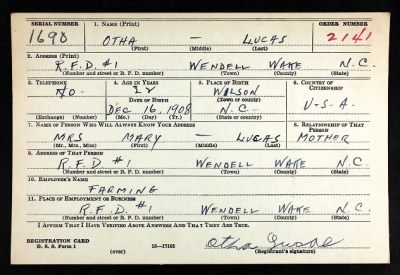 SERIAL NUMBER 1. NAME (Print) ORDER NUMBER
1698 OTHA — LUCAS 2141
(First) (Middle) (Last)
2. ADDRESS (Print)
R.F.D. #1 WENDELL WAKE N.C.
(Number and street or R. F. D. number) (Town) (County) (State)
3. TELEPHONE 4. AGE IN YEARS 5. PLACE OF BIRTH 6. COUNTRY OF CITIZENSHIP
NO. WILSON
DATE OF BIRTH (Town or county)
DEC 16, 1908 N.C. U-S-A.
(Exchange) (Number) (Mo.) (Day) (Yr.) (State or country)
7. NAME OF PERSON WHO WILL ALWAYS KNOW YOUR ADDRESS 8. RELATIONSHIP OF THAT PERSON
MRS MARY — LUCAS MOTHER
(Mr., Mrs., Miss) (First) (Middle) (Last)
9. ADDRESS OF THAT PERSON
R.F.D. #1 WENDELL WAKE N.C.
(Number and street or R. F. D. number) (Town) (County) (State)
10. EMPLOYER'S NAME
FARMING
11. PLACE OF EMPLOYMENT OR BUSINESS
R.F.D. #1 WENDELL WAKE N.C.
(Number and street or R. F. D. number) (Town) (County) (State)
I AFFIRM THAT I HAVE VERIFIED ABOVE ANSWERS AND THAT THEY ARE TRUE.
REGISTRATION CARD
D. S. S. Form 1 (over) 16—17105 Otha
(Registrant's signature)